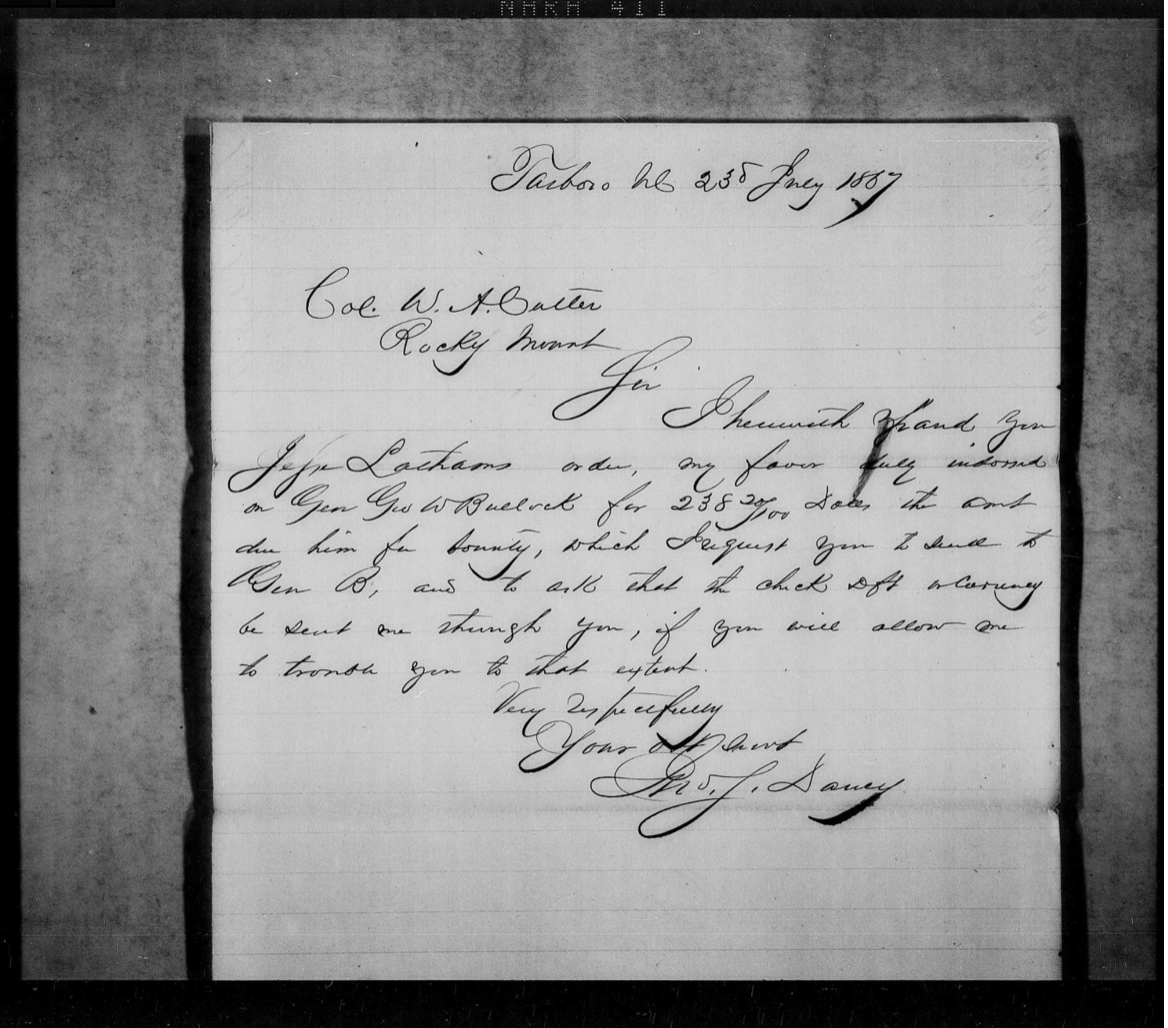 NARA 411
Tarboro NC 23d July 1867
Col. W. A. Cutter
Rocky Mount
Sir
I herewith hand you
Jeff Lathams order, my favor duly indorsed
on Gen Geo W Bullock for 238 20/100 Dolls the amt
due him for bounty, which I request you to send to
Gen B, and to ask that the check Dft or Currency
be sent me through you, if you will allow me
to trouble you to that extent.
Very respectfully
Your obt Servt
Jno. J. Dancy